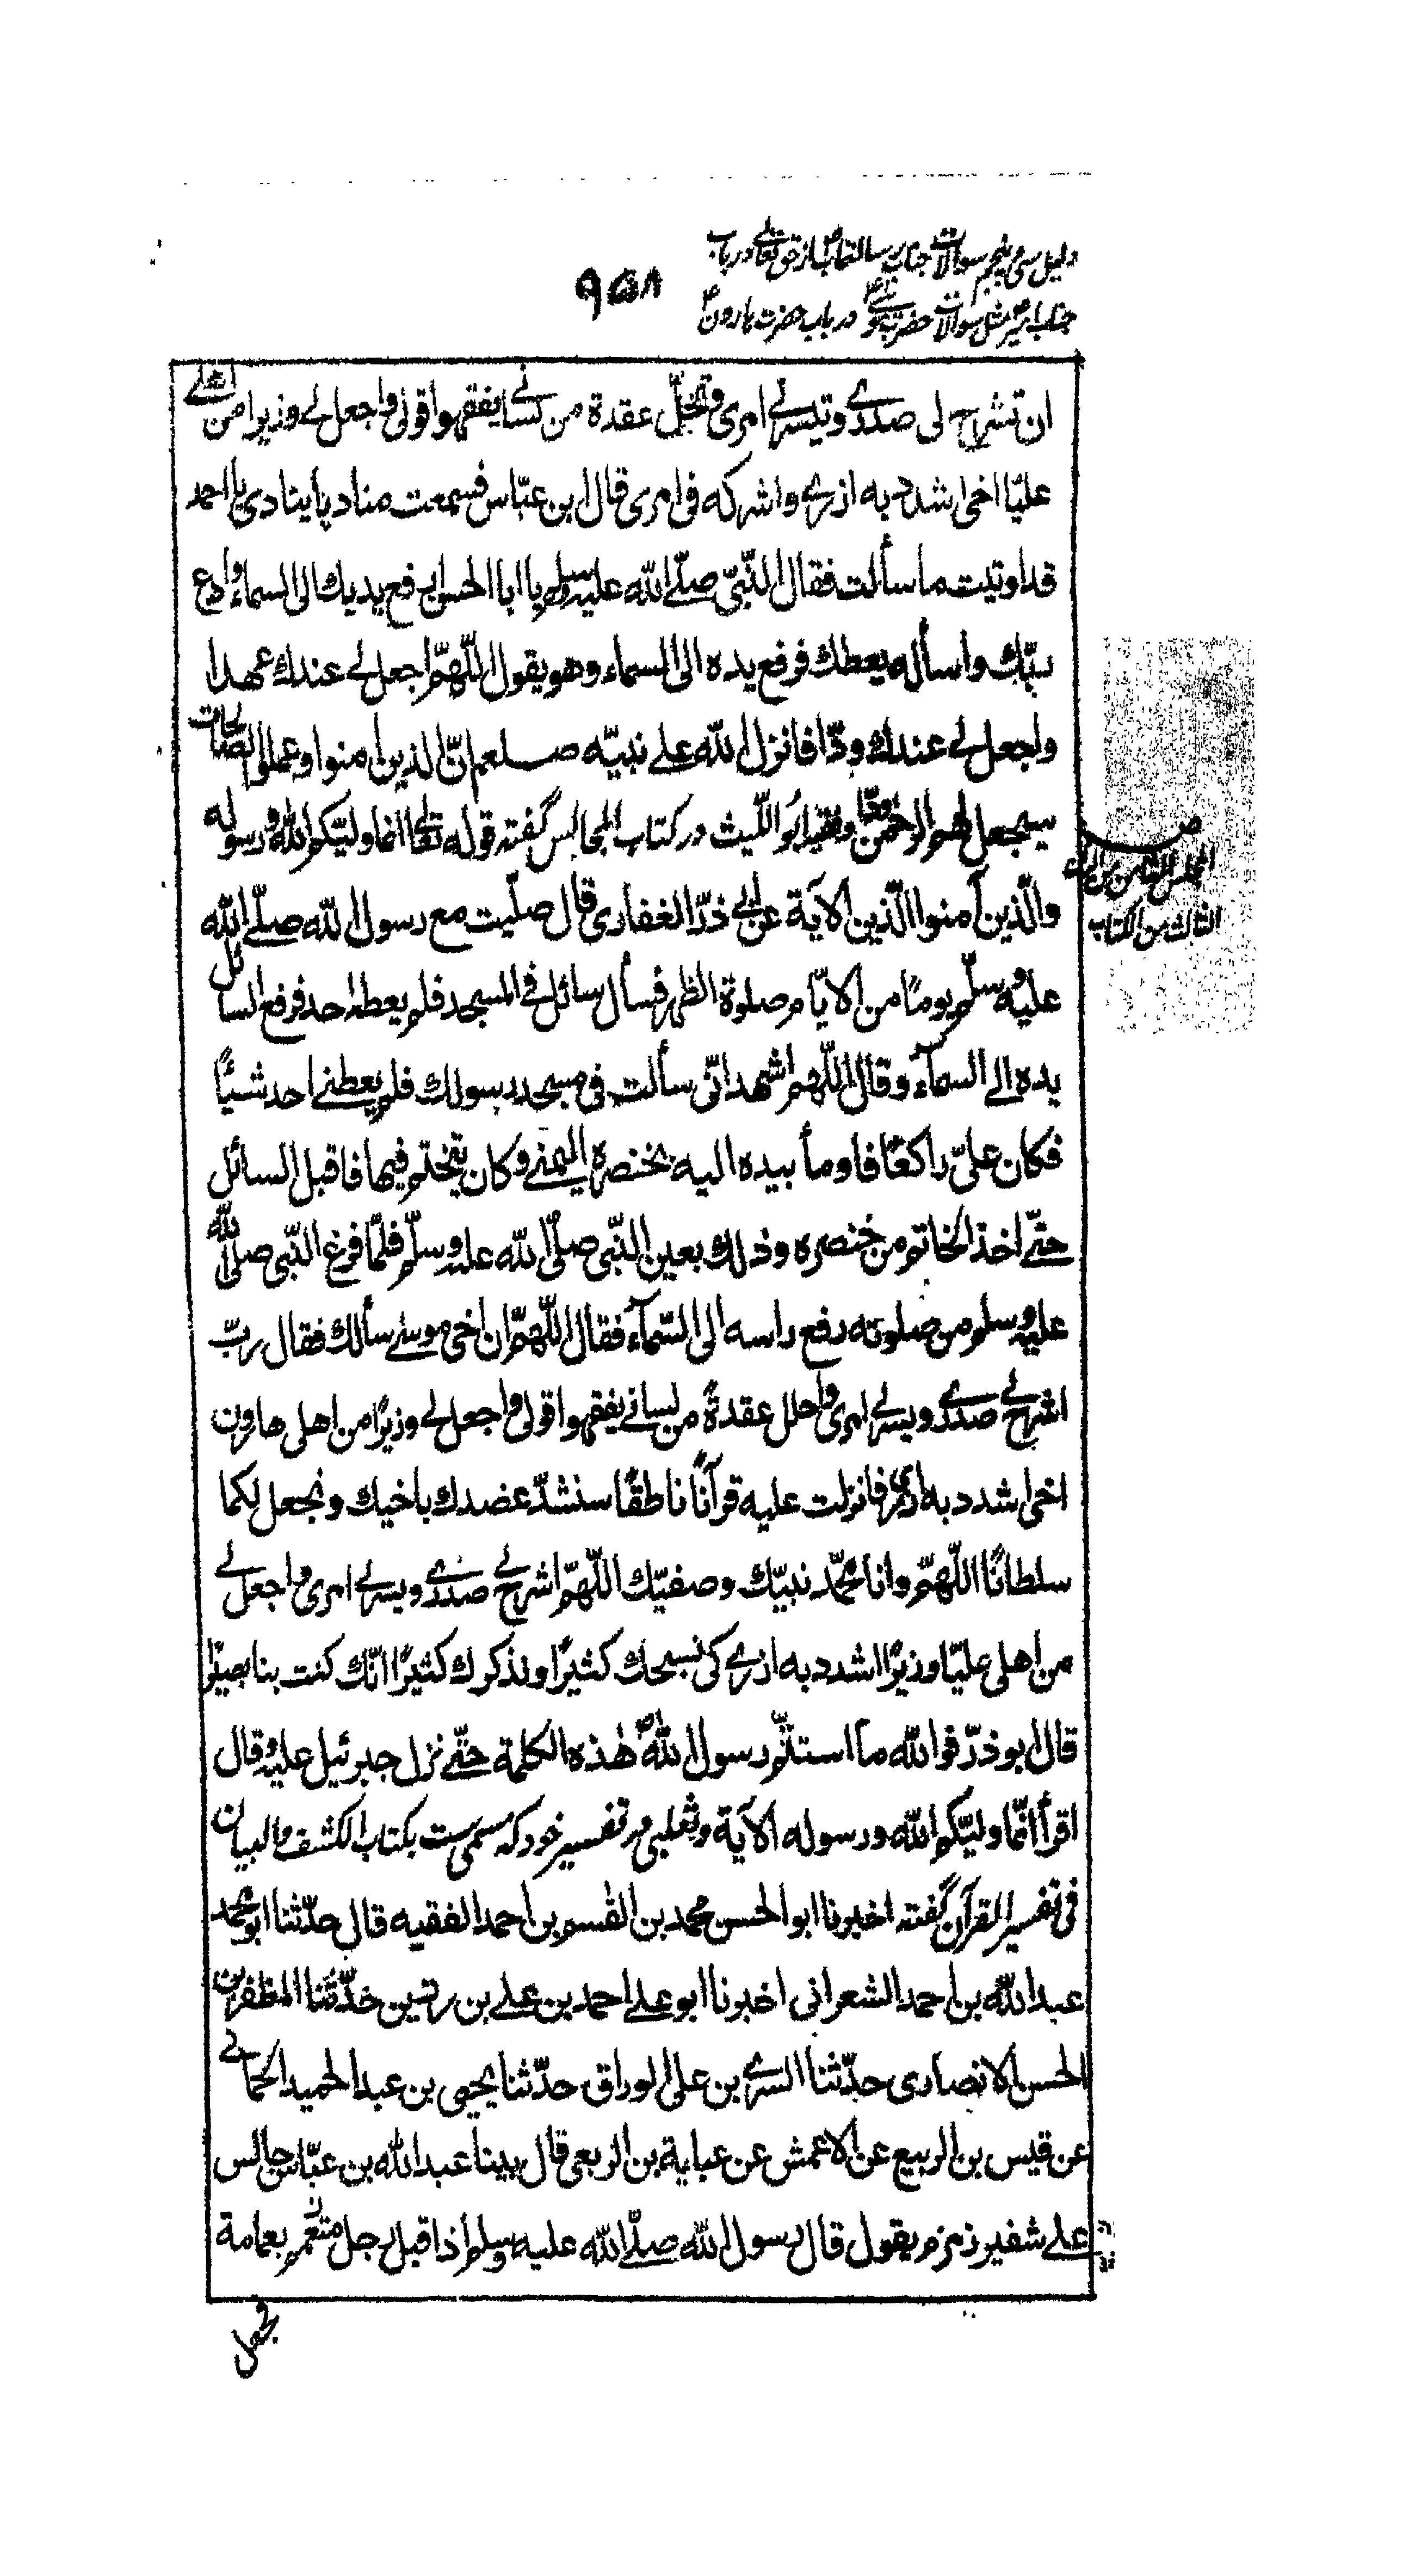 دلیل سی و پنجم سوالات جناب رسالتمآب از حق تعالی در باب
۹۵۸
جناب امیر مثل سوالات حضرت موسی در باب حضرت هارون
ان تشرح لی صدری و تیسر لی امری و تحلّل عقدة من لسانی یفقهوا قولی واجعل لی وزیرا من اهلی
علیّا اخی اشدد به ازری و اشرکه فی امری قال ابن عبّاس فسمعت منادیا ینادی یا احمد
قد اوتیت ما سألت فقال النّبیّ صلّی الله علیه وسلم یا ابا الحسن ارفع یدیك الی السماء و ادع
ربّك و اسأله یعطك فرفع یده الی السماء و هو یقول اللّهمّ اجعل لی عندك عهدا
واجعل لی عندك ودّا فانزل الله علی نبیّه صلعم انّ الذین امنوا و عملوا الصالحات
سیجعل لهم الرحمن ودّا و فقیه ابو اللّیث در کتاب المجالس گفته قوله تعالی انما ولیّکم الله و رسوله
المجلس الثامن من
والّذین آمنوا الّذین الآیة عن ابی ذرّ الغفاری قال صلّیت مع رسول الله صلّی الله
الثالث من الکتاب
علیه وسلّم یومًا من الایّام صلوة الظهر فسأل سائل فی المسجد فلم یعطه احد فرفع السائل
یده الی السمآء و قال اللّهم اشهد انّی سألت فی مسجد رسولك فلم یعطنی احد شیئًا
فکان علیّ راکعًا فاومأ بیده الیه بخنصره الیمنی و کان یتختم فیها فاقبل السائل
حتّی اخذ الخاتم من خنصره و ذلك بعین النّبی صلّی الله علیه وسلّم فلمّا فرغ النّبی صلی الله
علیه وسلم من صلوته رفع راسه الی السّمآء فقال اللّهمّ ان اخی موسی سألك فقال ربّ
اشرح لی صدری و یسر لی امری واحلل عقدةً من لسانی یفقهوا قولی واجعل لی وزیرًا من اهلی هارون
اخی اشدد به ازری فانزلت علیه قرآنًا ناطقًا سنشدّ عضدك باخیك و نجعل لکما
سلطانًا اللّهمّ وانا محمّد نبیّك و صفیّك اللّهمّ اشرح لی صدری و یسر لی امری واجعل لی
من اهلی علیّا وزیرًا اشدد به ازری کی نسبحك کثیرًا و نذکرك کثیرًا انّك کنت بنا بصیرًا
قال ابو ذرّ فوالله ما استتمّ رسول الله هذه الکلمة حتّی نزل جبرئیل علیه و قال
اقرأ انّما ولیّکم الله و رسوله الآیة و ثعلبی در تفسیر خود که مسمی ست بکتاب الکشف والبیان
فی تفسیر القرآن گفته اخبرنا ابو الحسن محمد بن القسم بن احمد الفقیه قال حدّثنا ابو محمد
عبد الله بن احمد الشعرانی اخبرنا ابو علی احمد بن علی بن رزین حدّثنا المظفر بن
الحسن الانصاری حدّثنا السری بن علی الوراق حدّثنا یحیی بن عبد الحمید الحمانی
عن قیس بن الربیع عن الاعمش عن عبایة بن الربعی قال بینا عبد الله بن عبّاس جالس
علی شفیر زمزم یقول قال رسول الله صلّی الله علیه وسلم اذ اقبل رجل متعمم بعمامة
فجعل